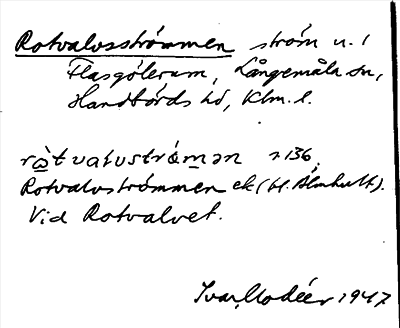 Rotvalvsströmmen ström u. /
Flasgölerum, Långemåla sn,
Handbörds hd, Klm. l.
rὼtvalvstrámən 136
Rotvalvströmmen ek (bl. Älmhult).
Vid Rotvalvet.
Ivar Modéer 1947